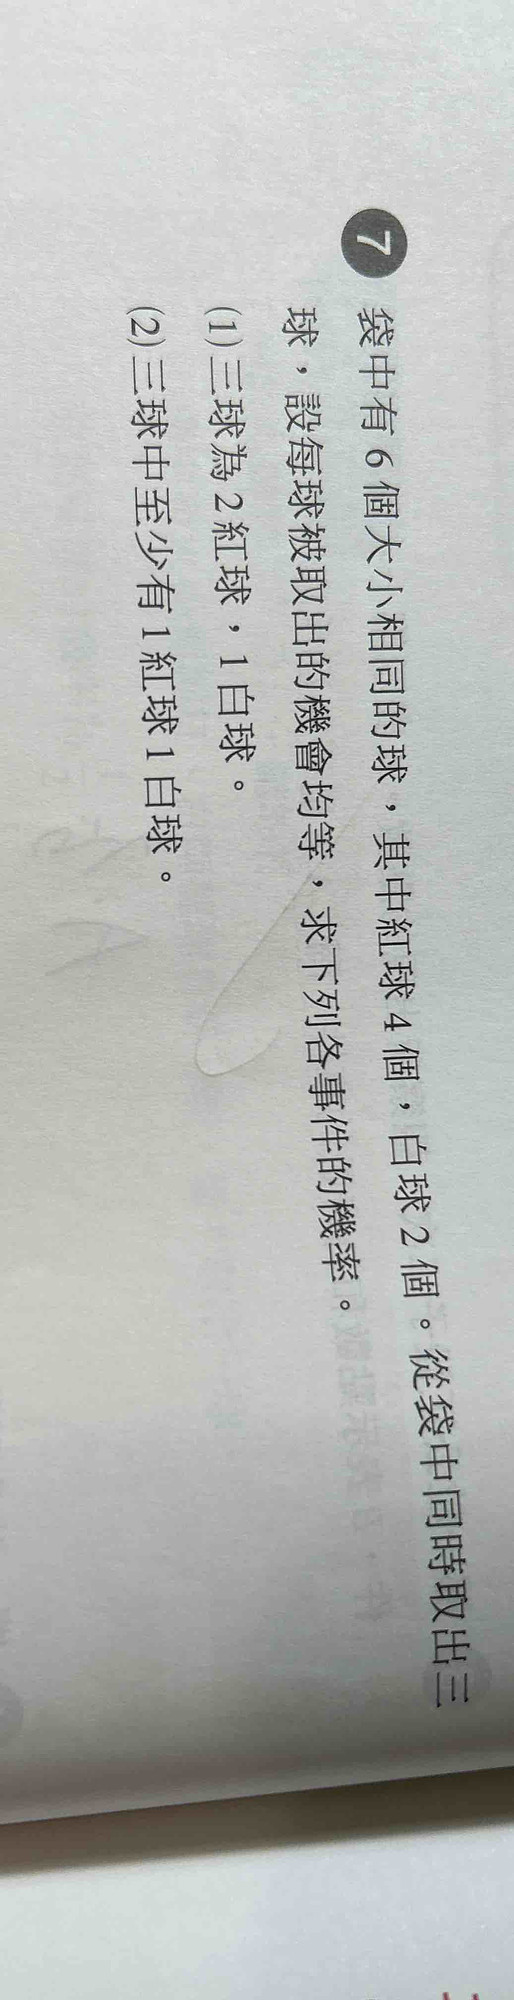 7 袋中有6個大小相同的球，其中紅球4個，白球2個。從袋中同時取出三
球，設每球被取出的機會均等，求下列各事件的機率。
(1)三球為2紅球，1白球。
(2)三球中至少有1紅球1白球。